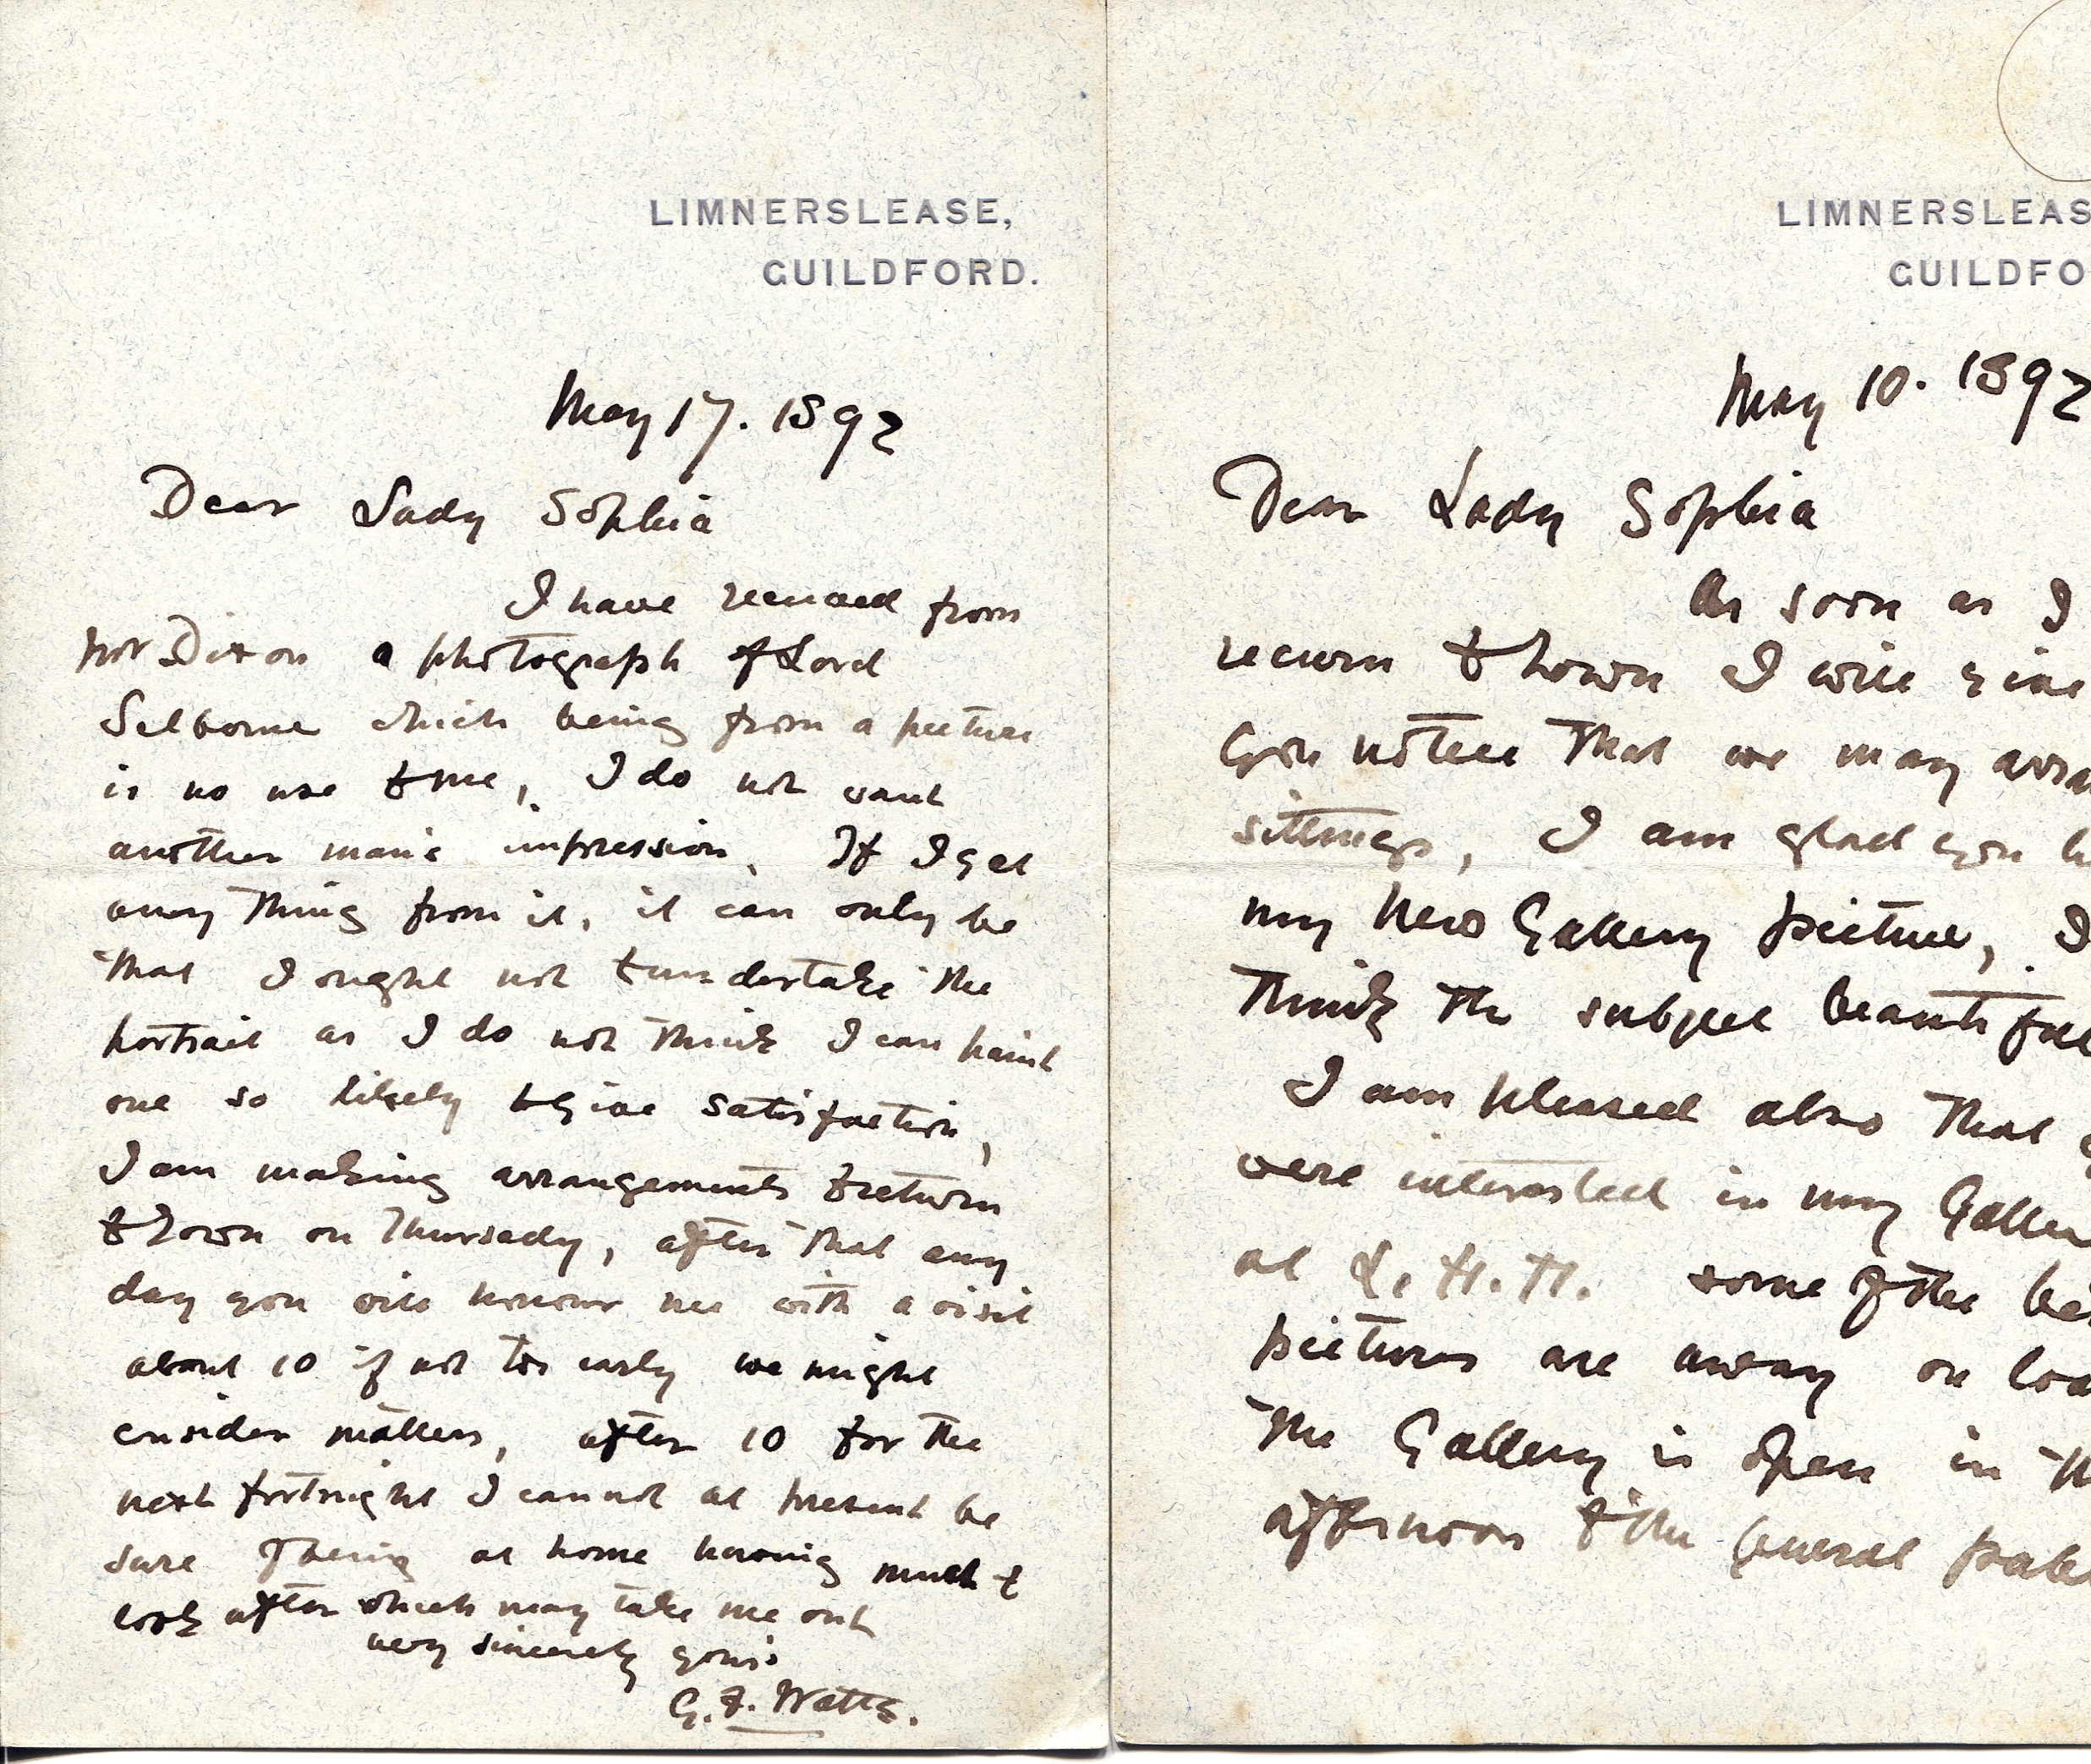 LIMNERSLEASE,
GUILDFORD.
May 17. 1892
Dear Lady Sophia
I have received from
Mr Dixon a photograph of Lord
Selborne which being from a picture
is no use to me, I do not want
another man's impression. If I get
any thing from it, it can only be
that I ought not to undertake the
portrait as I do not think I can paint
one so likely to give satisfaction,
I am making arrangements to return
to town on Thursday, after that any
day you will honour me with a visit
about 10 if not too early we might
consider matters, after 10 for the
next fortnight I cannot at present be
sure of being at home having much to
look after which may take me out
very sincerely yours
G. F. Watts.
LIMNERSLEAS
GUILDFO
May 10. 1892
Dear Lady Sophia
As soon as I
return to town I will give
you notice that we may arra
sittings, I am glad you li
my New Gallery picture, I
think the subject beautiful
I am pleased also that y
were interested in my Galle
at L. H. H. some of the bes
pictures are away on loa
The Gallery is open in th
afternoon to the general publ